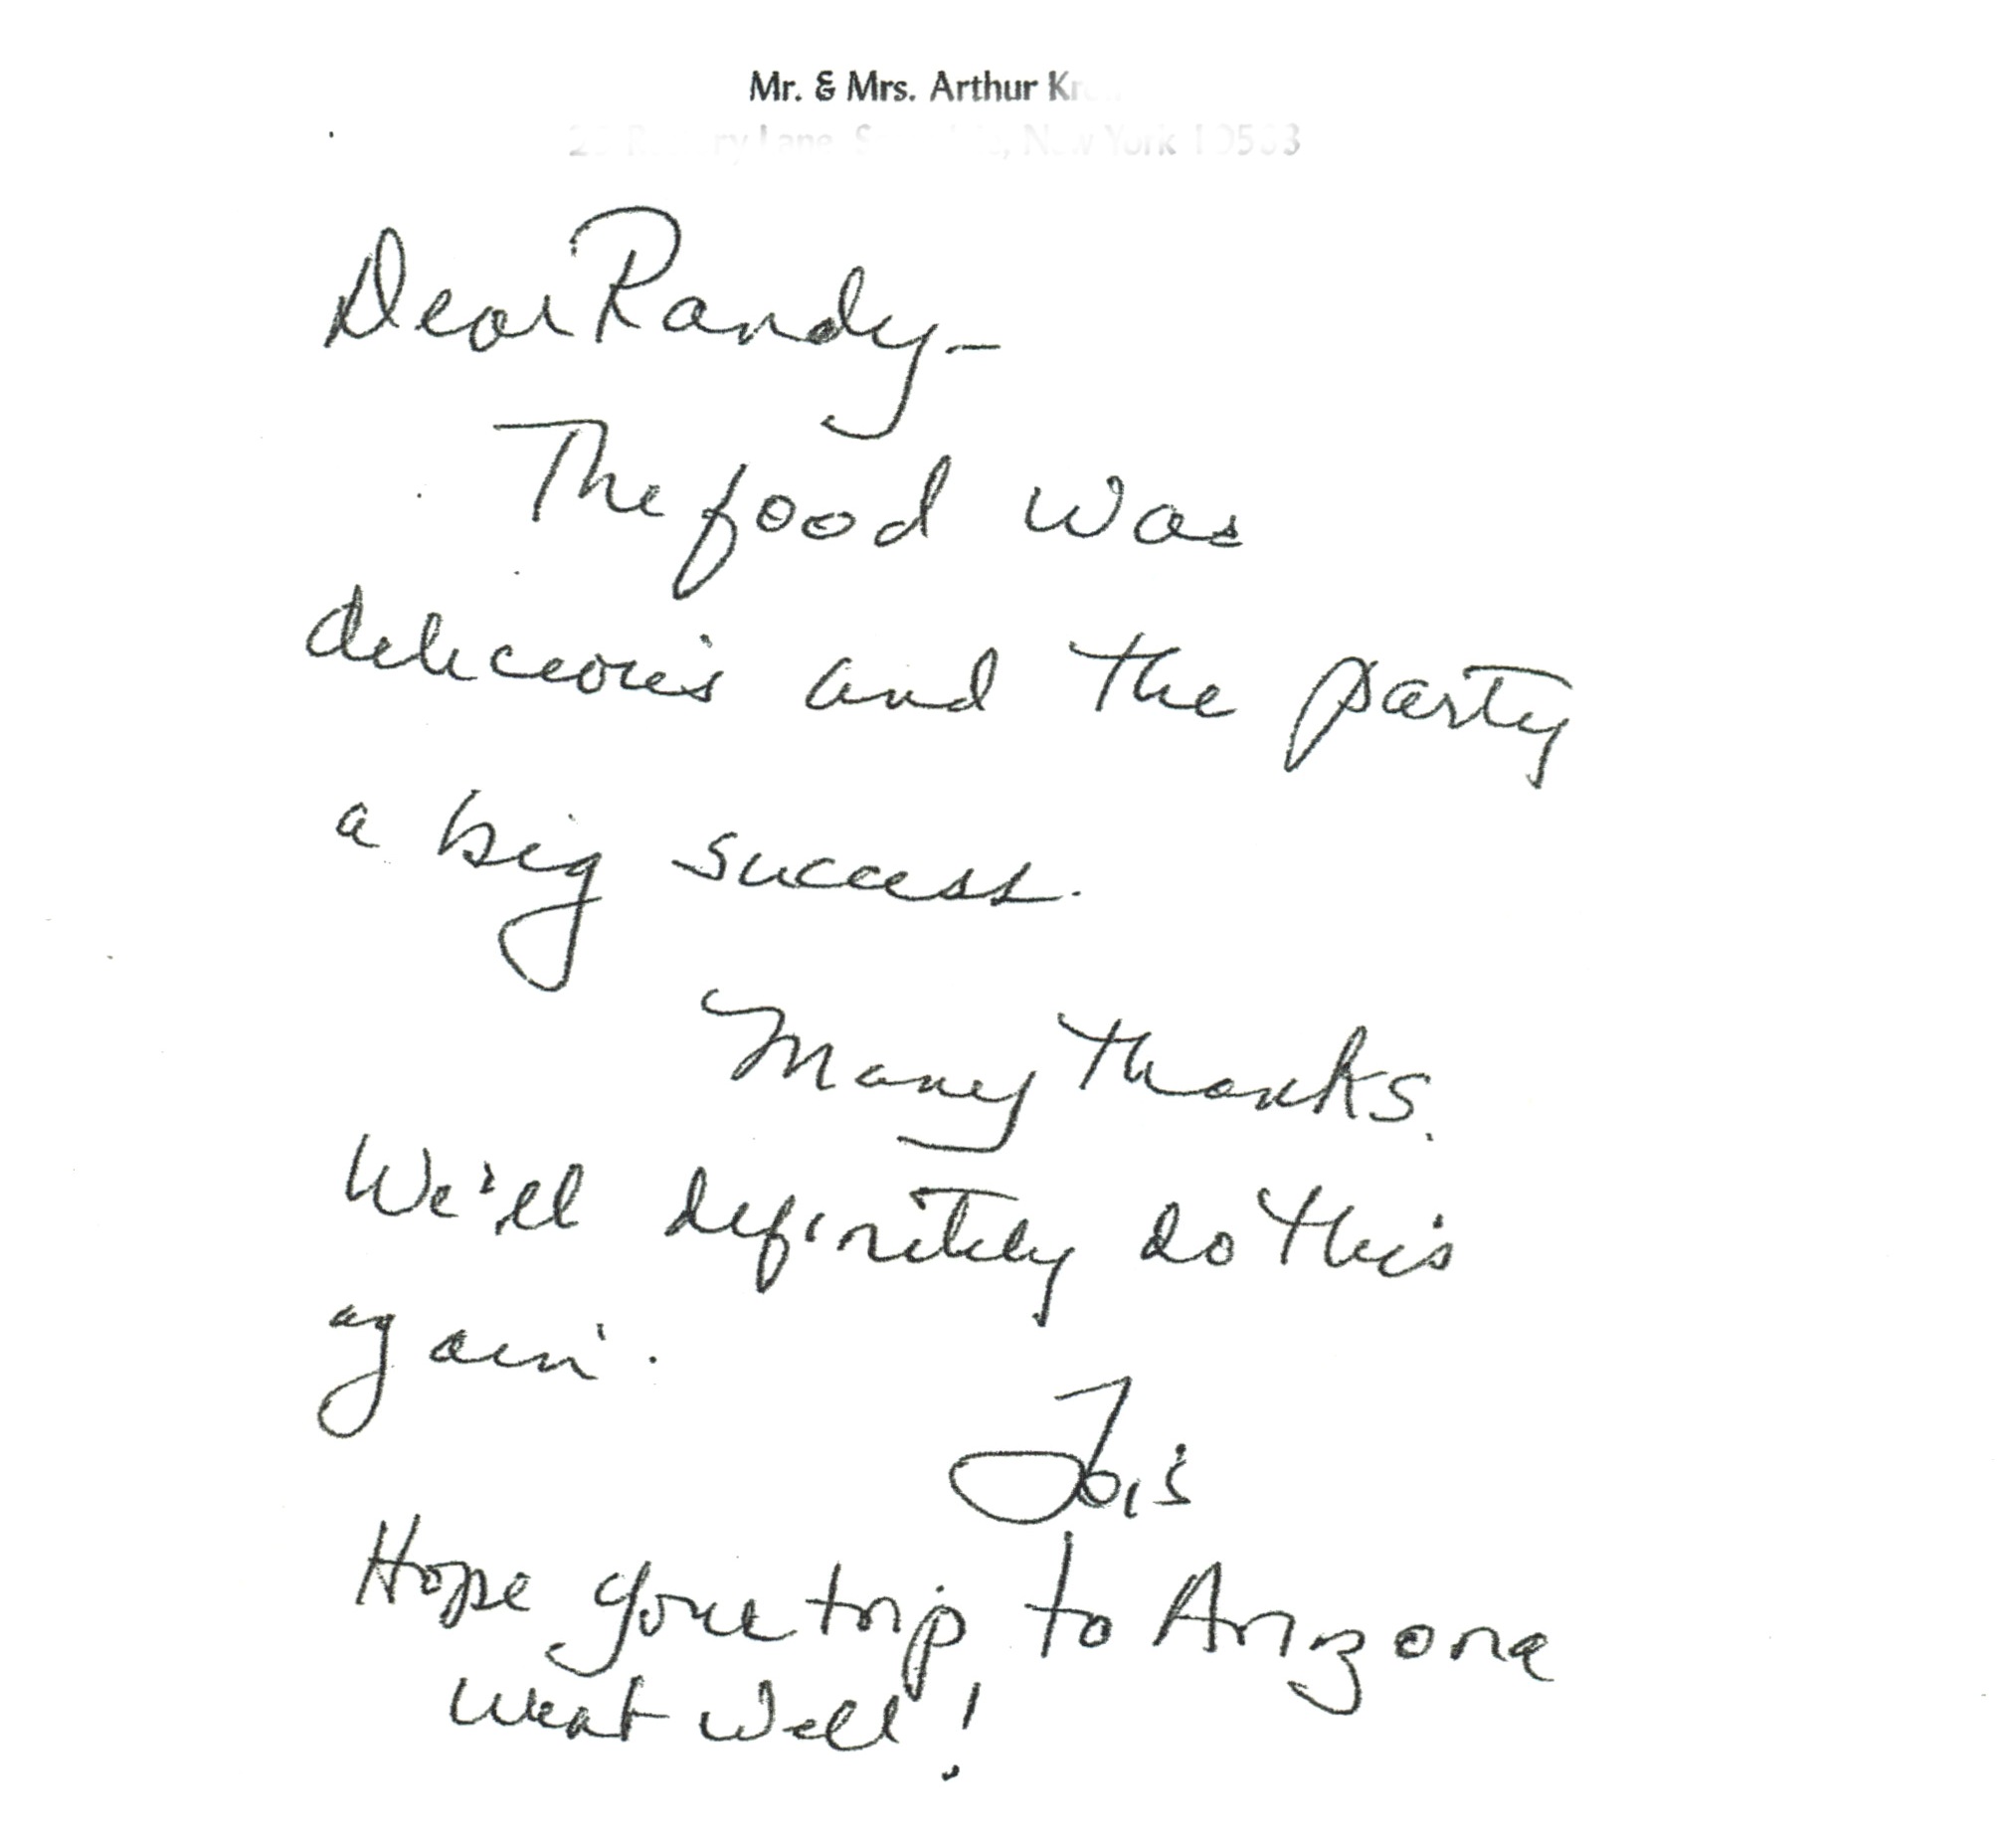 Mr. & Mrs. Arthur
Lane, New York
Dear Randy-
The food was
delicious and the party
a big success.
Many thanks.
We'll definitely do this
again.
Lois
Hope your trip to Arizona
went well!